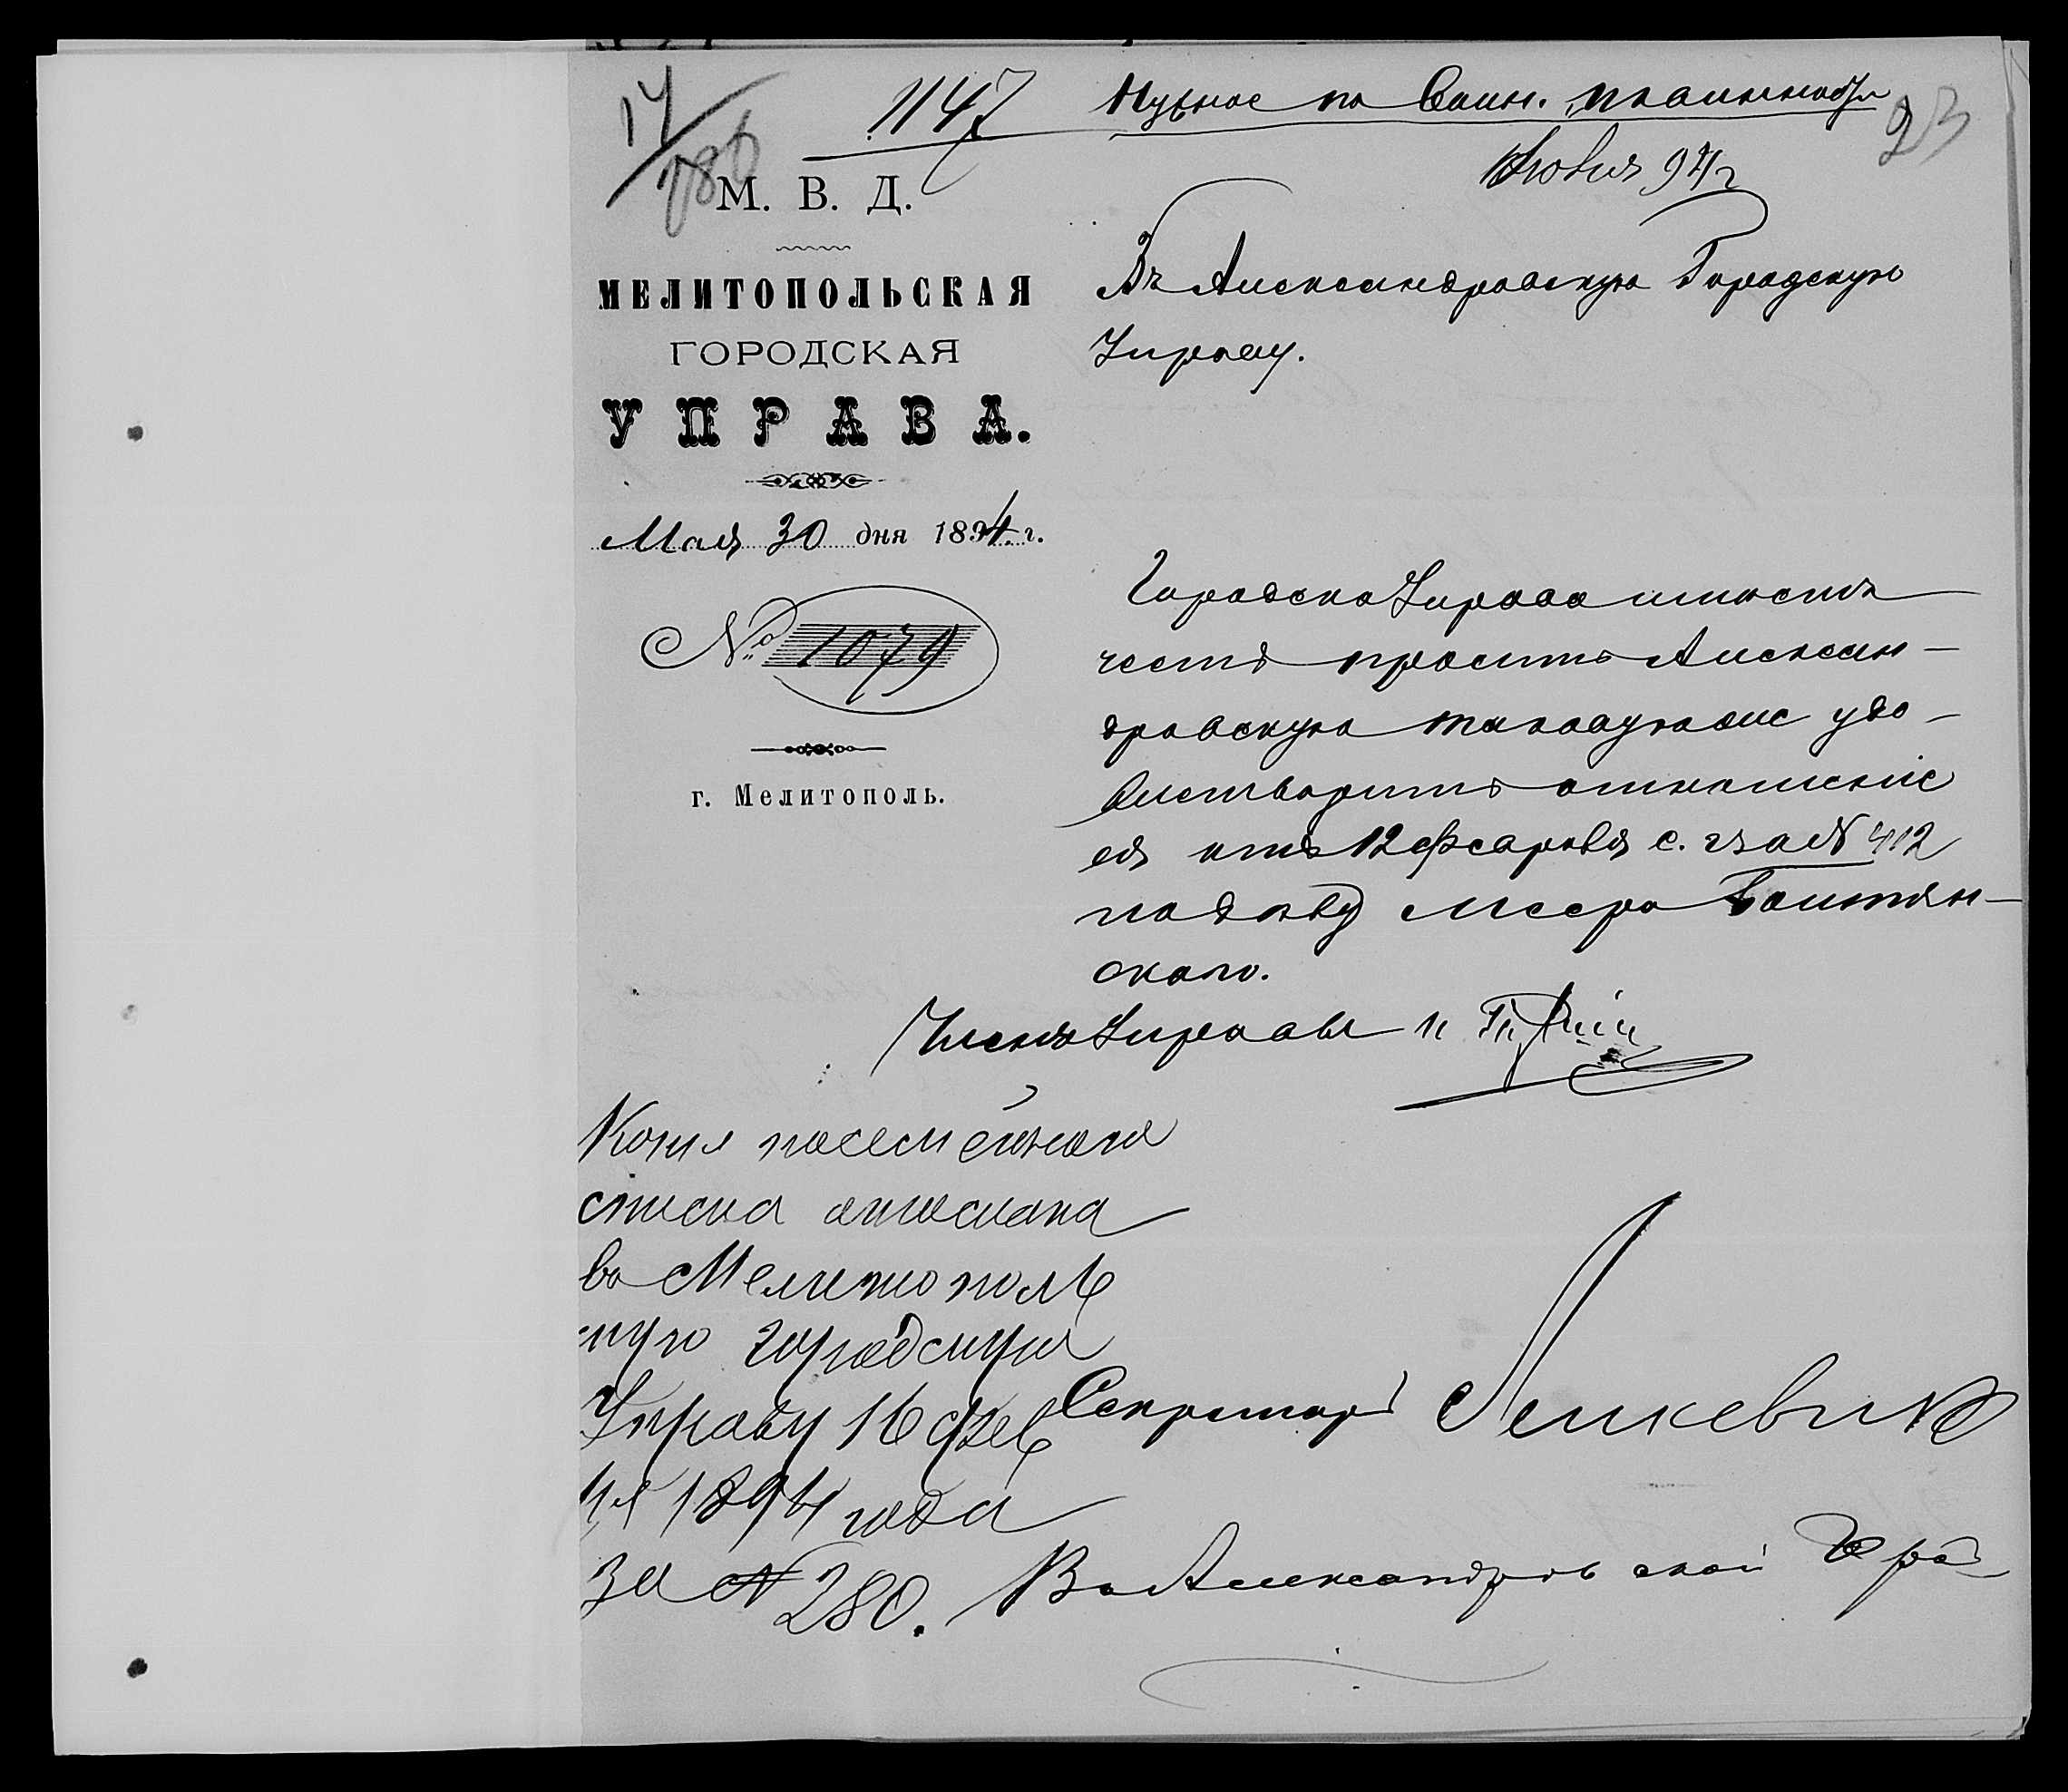 14
1147 Нужное по Воин. повинности
23
Июня 94 г
М. В. Д.
МЕЛИТОПОЛЬСКАЯ
ГОРОДСКАЯ
УПРАВА.
Мая 30 дня 1894 г.
№ 1079
г. Мелитополь.
Въ Александровскую Городскую
Управу.
Городская Управа имѣетъ
честь просить Алексан-
дровскую таковую же удо-
влетворить отношеніе
ея отъ 12 Февраля с. г. за № 412
по дѣлу Меера
скаго.
Членъ Управы
Секретарь
Копія посемейнаго
списка отослана
въ Мелитополь
скую городскую
Управу 16 фев
ля 1894 года
за № 280.
Въ Александровской Гора